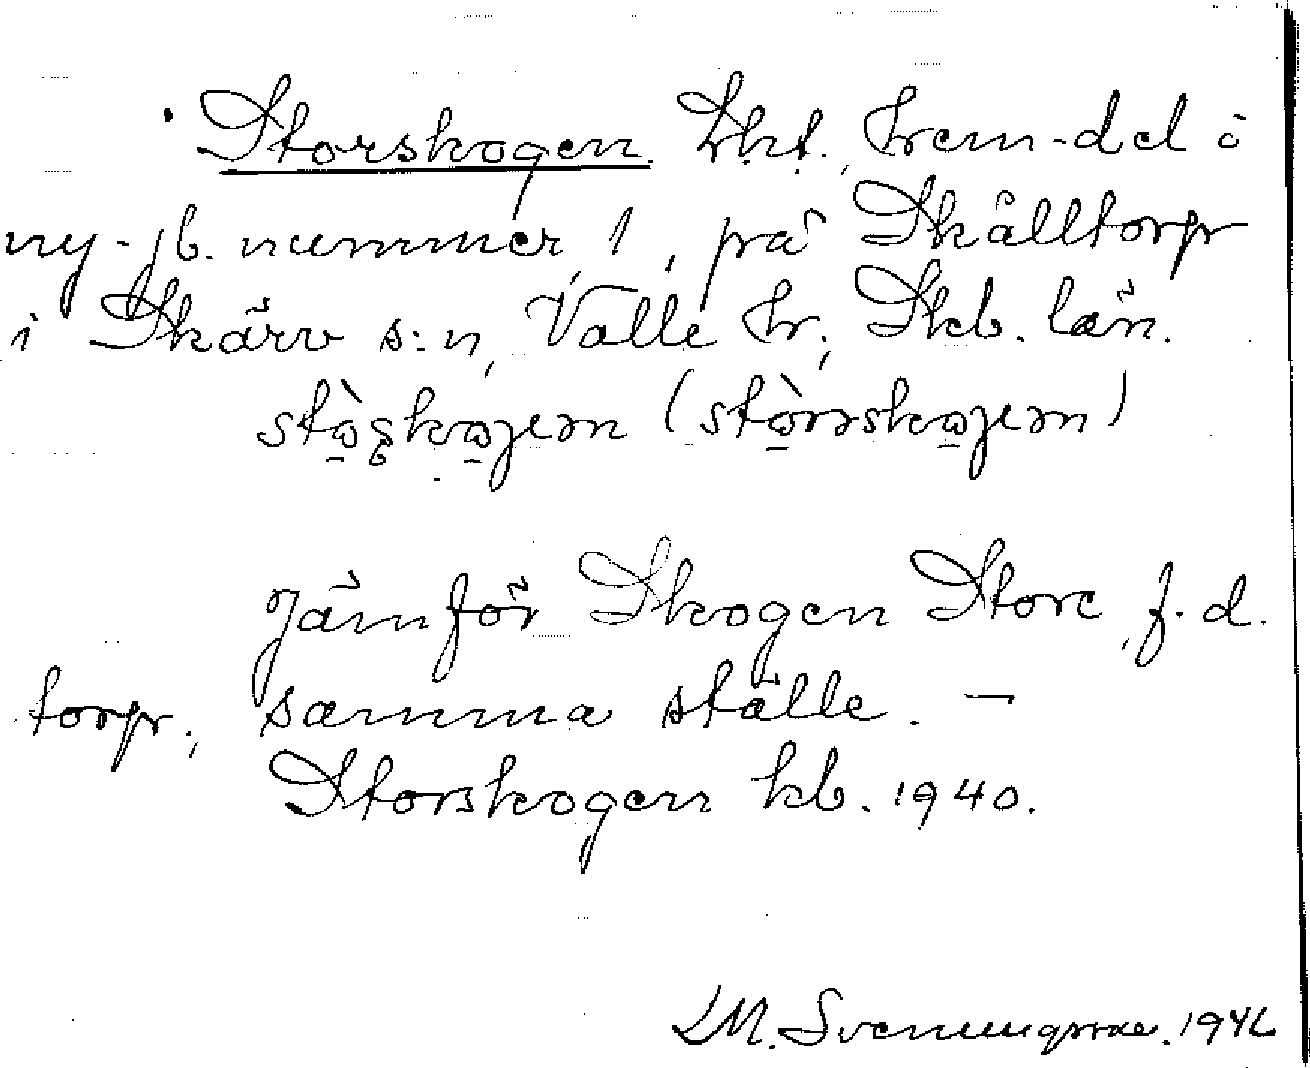 Storskogen lht., hem-del å
ny-jb. nummer, 1, på Skålltorp
i Skärv s:n, Valle hr., Skb. län.
stòs̨kojen (stòrskojen)
Jämför Skogen Store, f. d.
torp., samma ställe. —
Storskogen kb. 1940.
LM. Svenungsson. 1946